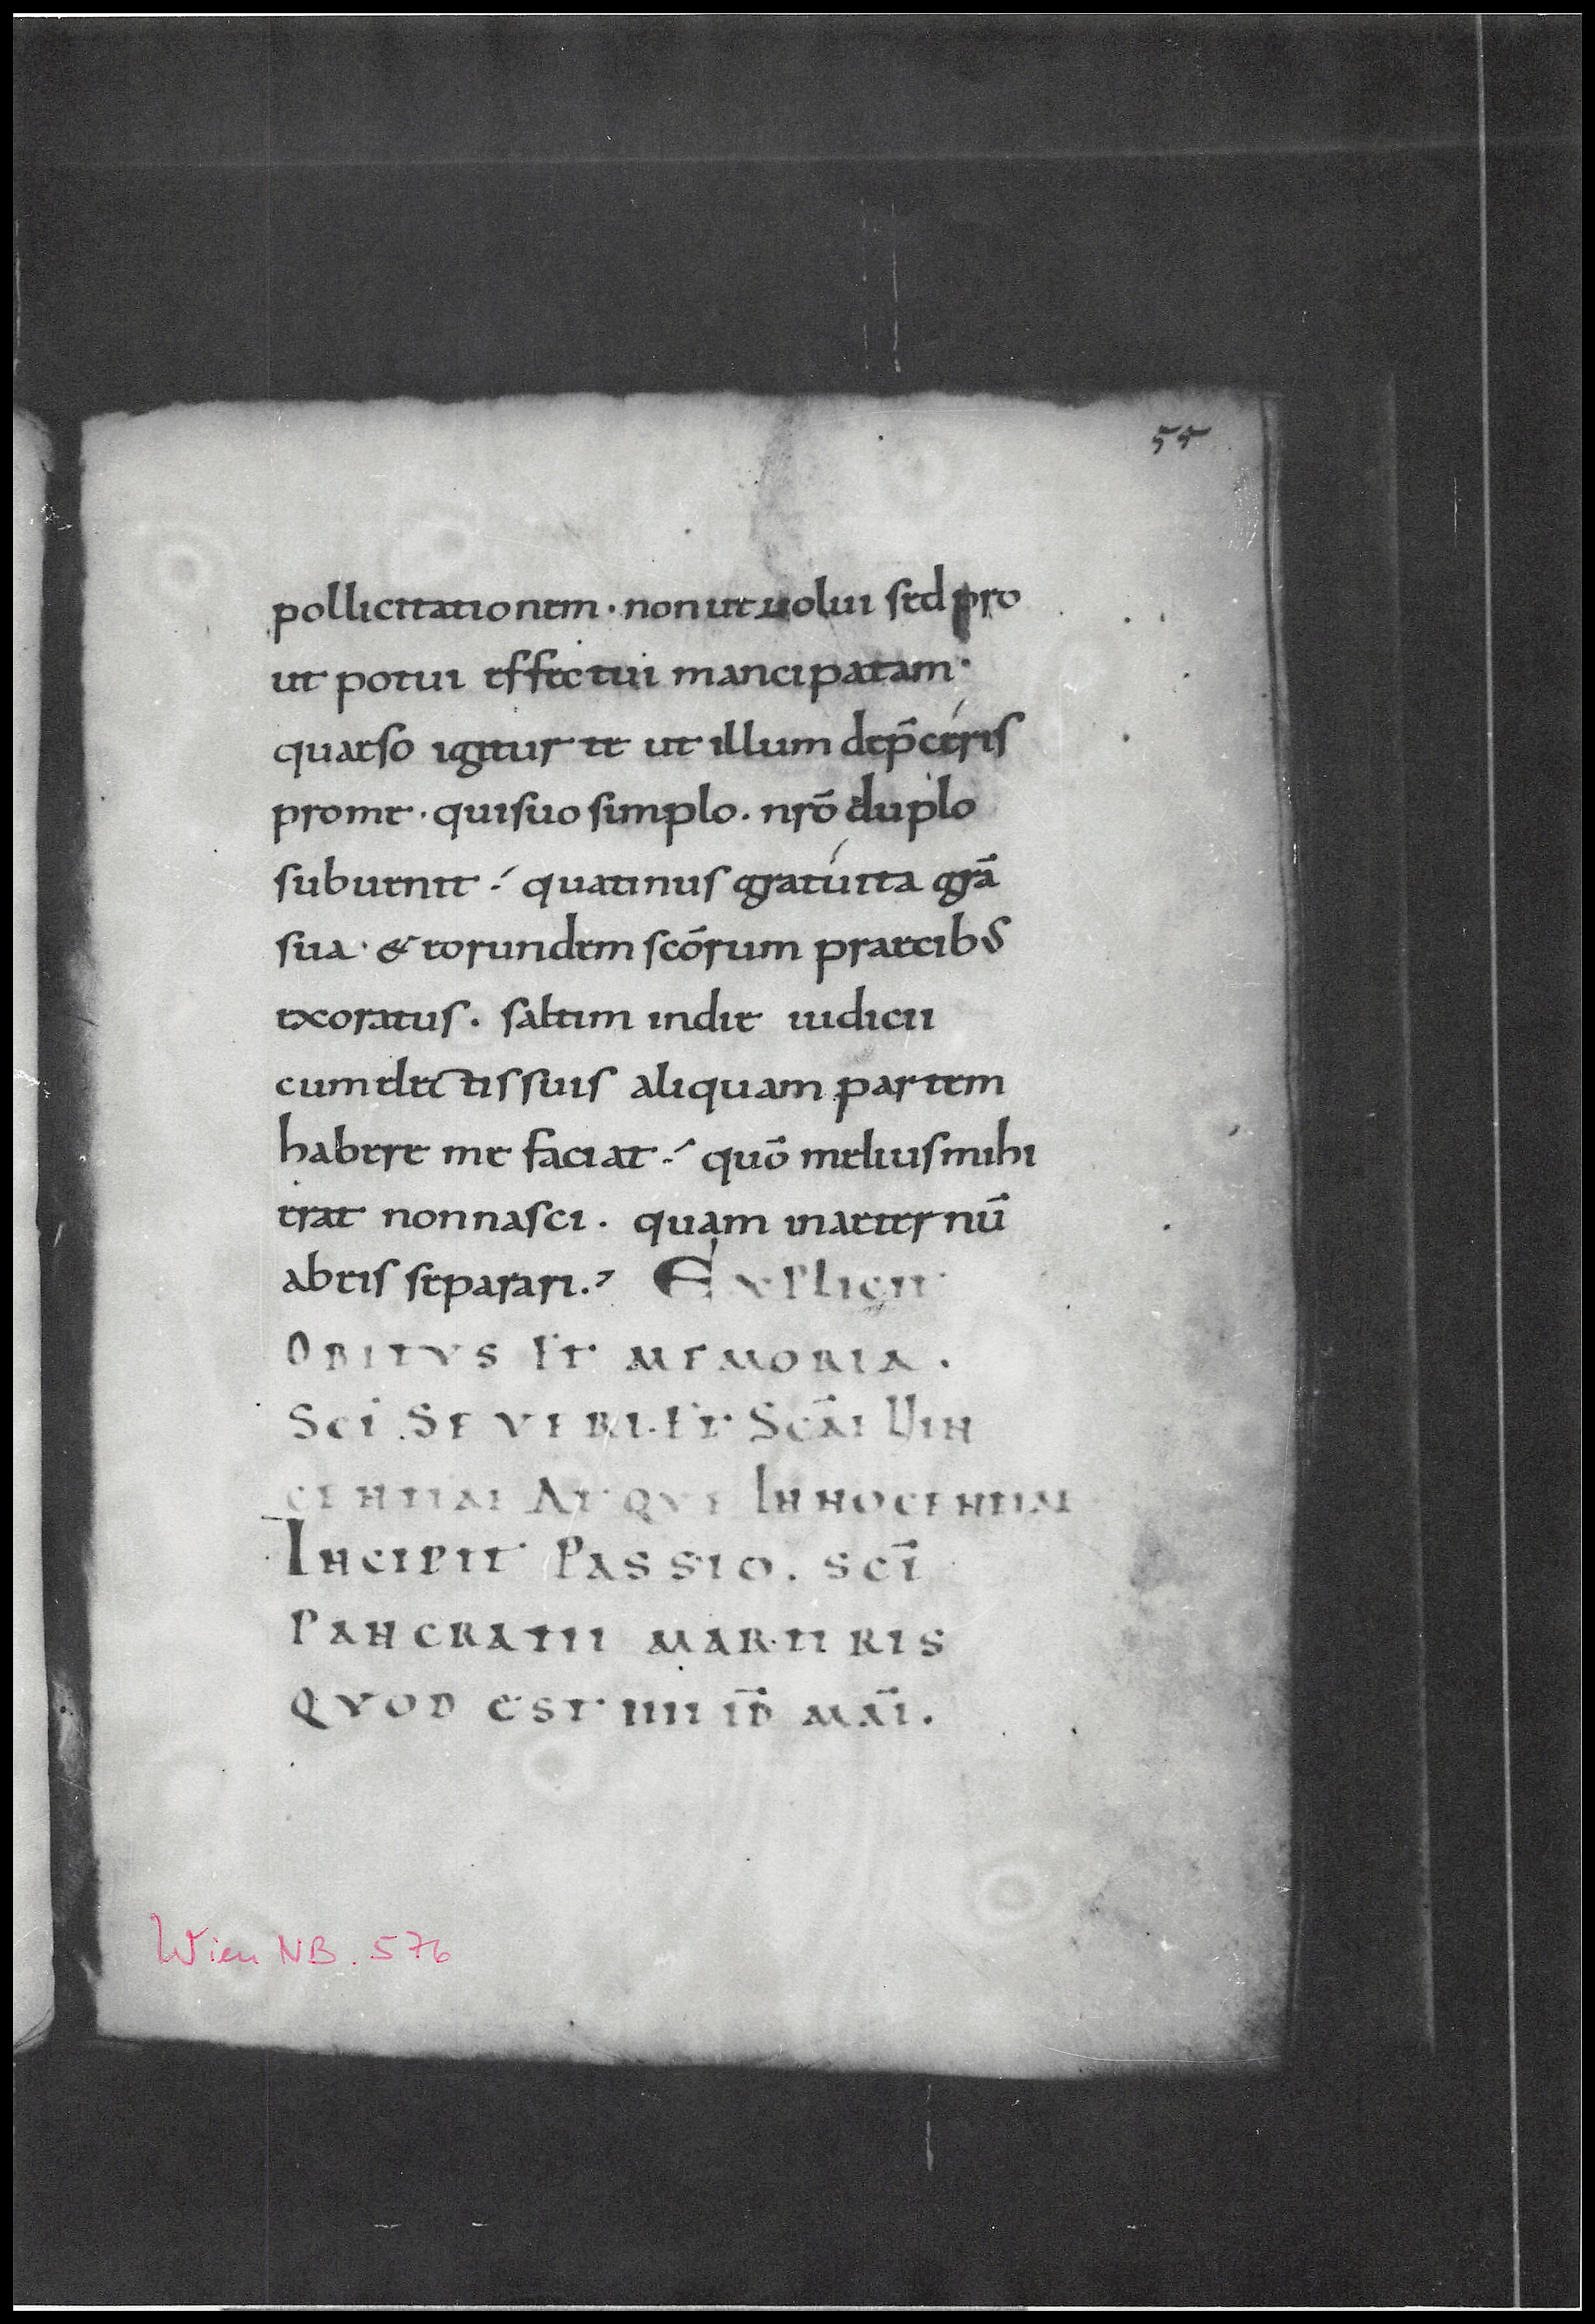 54
pollicitationem · non ut uolui sed pro
ut potui effectui mancipatam ·
quaeso igitur te ut illum dep̄céris
pro me · qui suo simplo . nrō duplo
subuenit ·́ quatinus gratúita grā
sua · & eorundem scōrum praecibs
exoratus . saltim in die iudicii
cum electis suis aliquam partem
habere me faciat ·́ quō melius mihi
erat non nasci . quam in aeternū
ab eis separari .’ Explicit
OBITVS ET MEMORIA .
SCĪ SEVERI . ET SCĀE VIN
CENTIAE ATQVE INNOCENTIAE
INCIPIT PASSIO . SCĪ
PANCRATII MARTIRIS
QVOD EST IIII ID̄ MAĪ .
Wien NB. 576